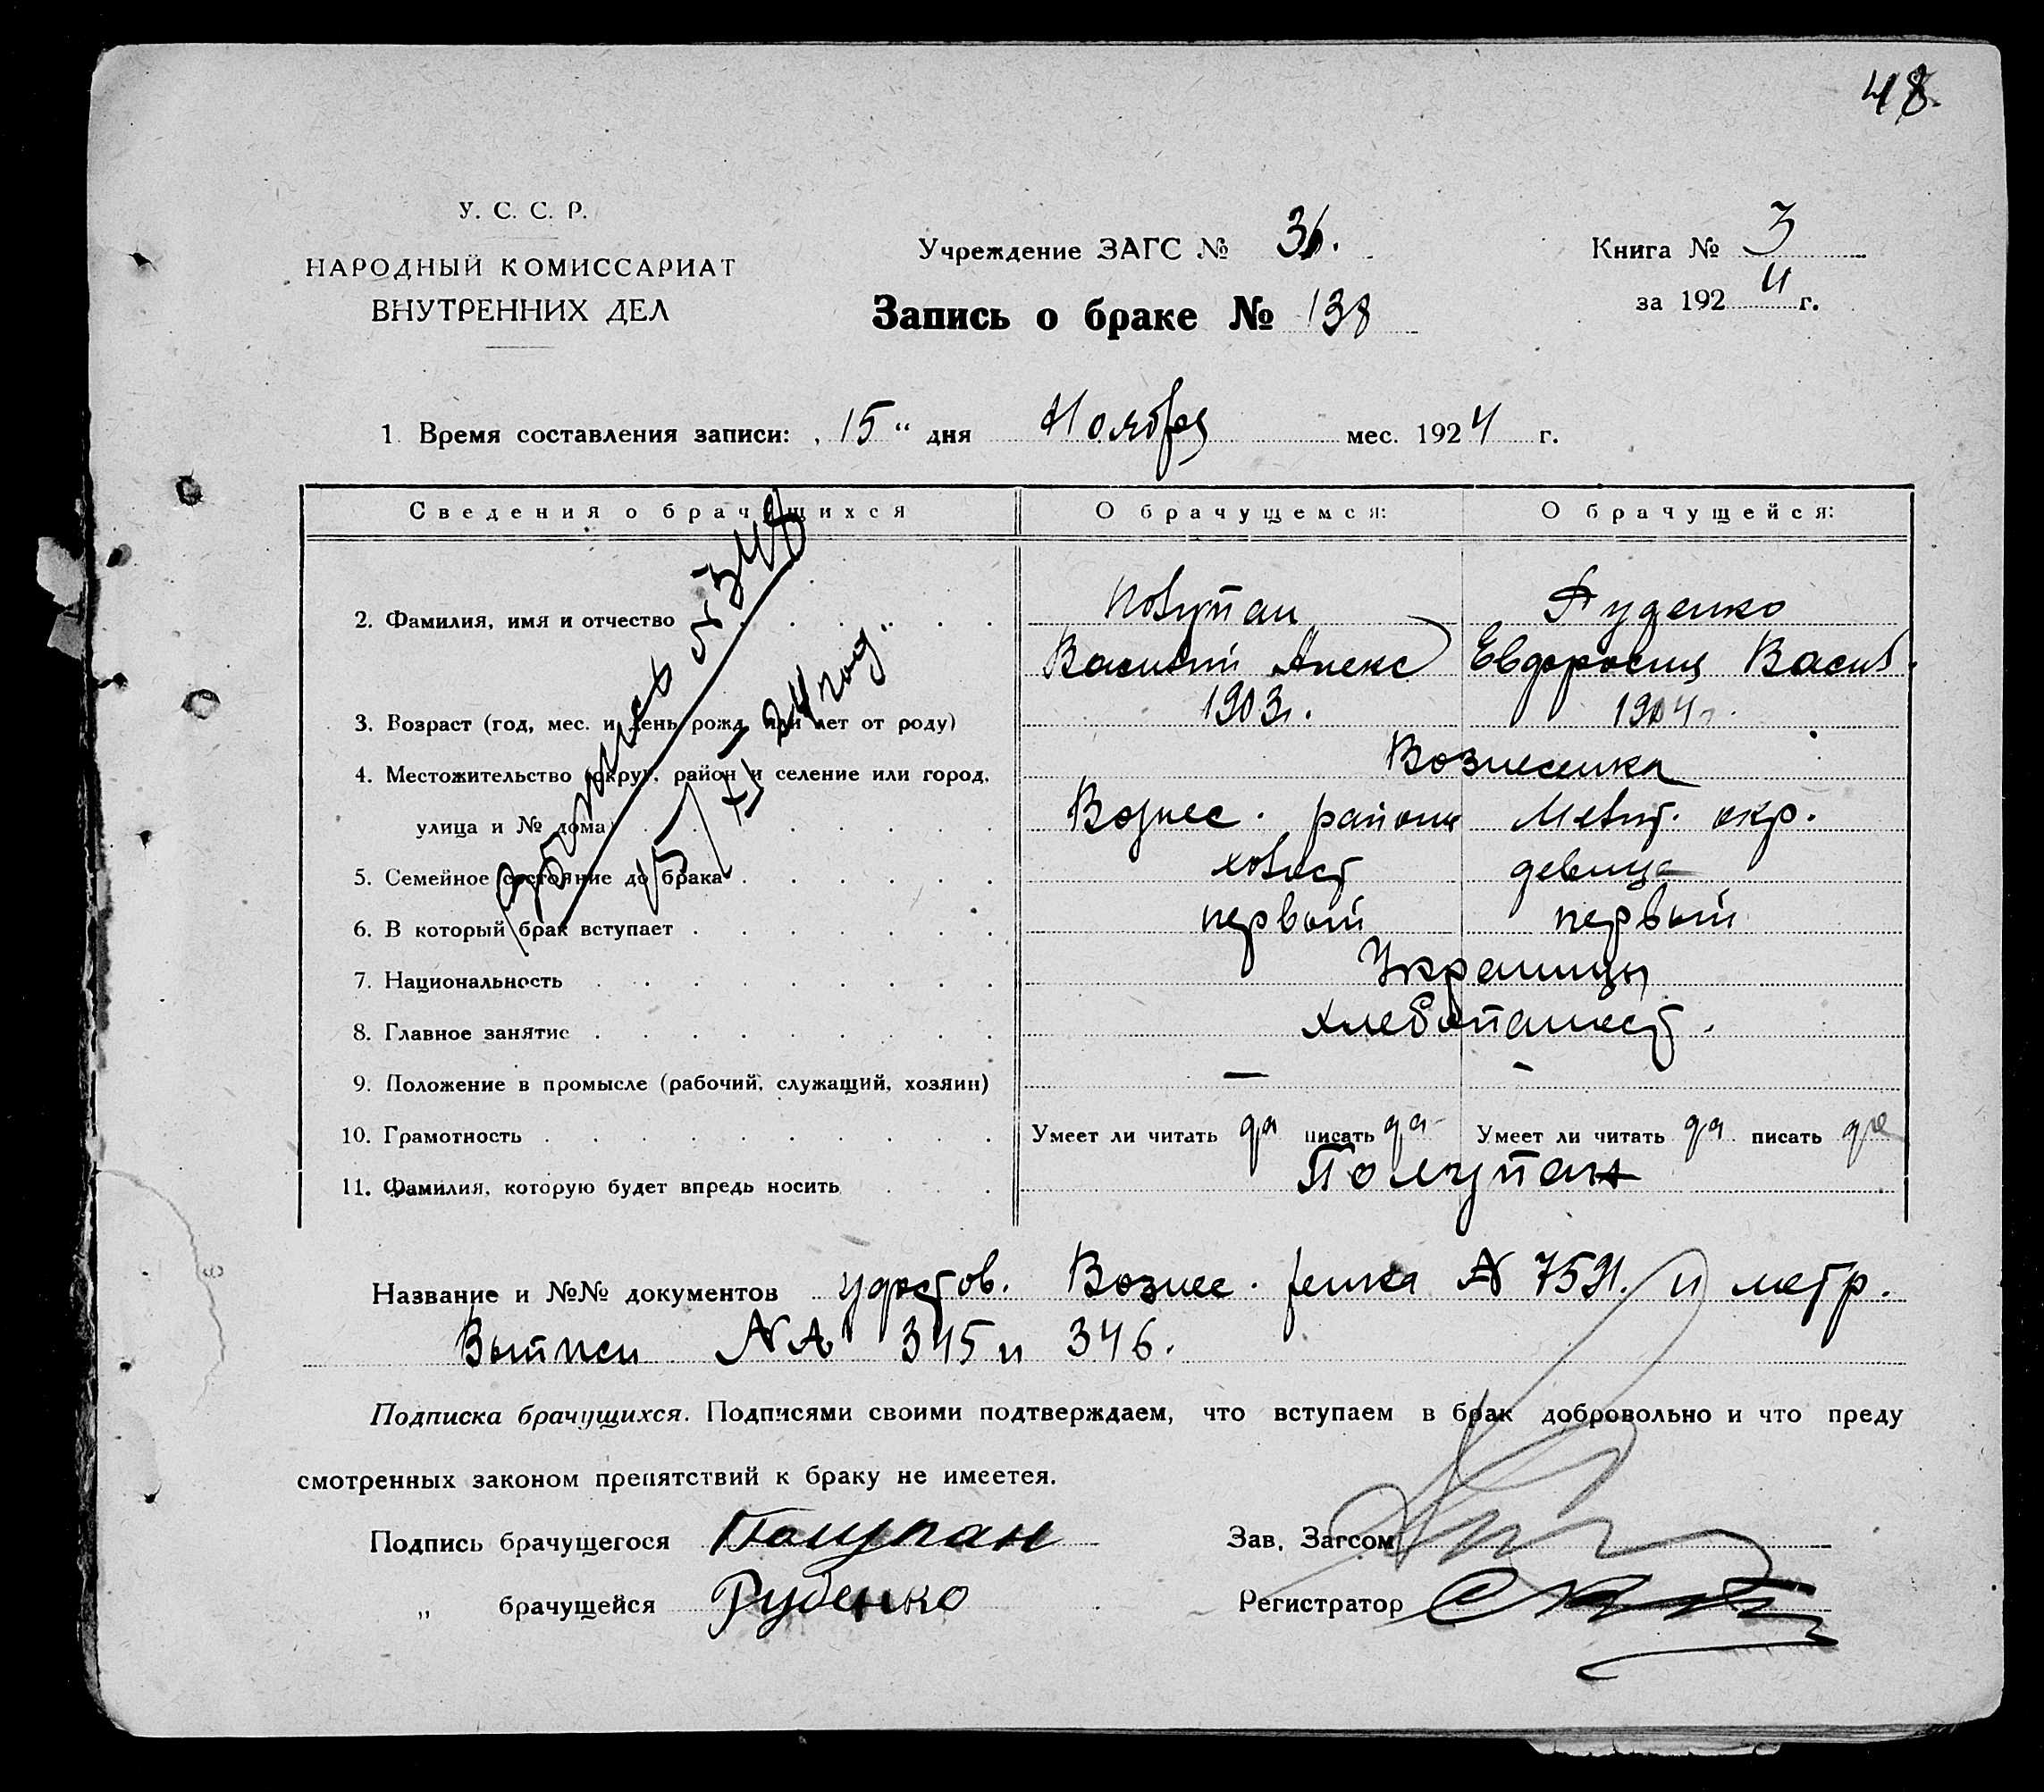 48.
У. С. С. Р.
НАРОДНЫЙ КОМИССАРИАТ
ВНУТРЕННИХ ДЕЛ
Учреждение ЗАГС № 36.
Книга № 3
за 1924 г.
Запись о браке № 138
1. Время составления записи: „15“ дня Ноября мес. 1924 г.
Сведения о брачущихся О брачущемся: О брачущейся:
2. Фамилия, имя и отчество Полупан Руденко
Василий Алекс Евфросиния Васил.
3. Возраст (год, мес. и день рожд. или лет от роду) 1903 г. 1904 г.
4. Местожительство (округ, район и селение или город, Вознесенка
улица и № дома) Вознес. района Мелит. окр.
5. Семейное состояние до брака холост девица
6. В который брак вступает первый первый
7. Национальность Украинцы
8. Главное занятие хлебопашест.
9. Положение в промысле (рабочий, служащий, хозяин) — —
10. Грамотность Умеет ли читать да писать да Умеет ли читать да писать да
11. Фамилия, которую будет впредь носить Полупан
15/XI 24 год.
Название и №№ документов удостов. Вознес. № 7591. и метр.
Выписи №№ 345 и 346.
Подписка брачущихся. Подписями своими подтверждаем, что вступаем в брак добровольно и что преду
смотренных законом препятствий к браку не имеется.
Подпись брачущегося Полупан Зав. Загсом
„ брачущейся Руденко Регистратор